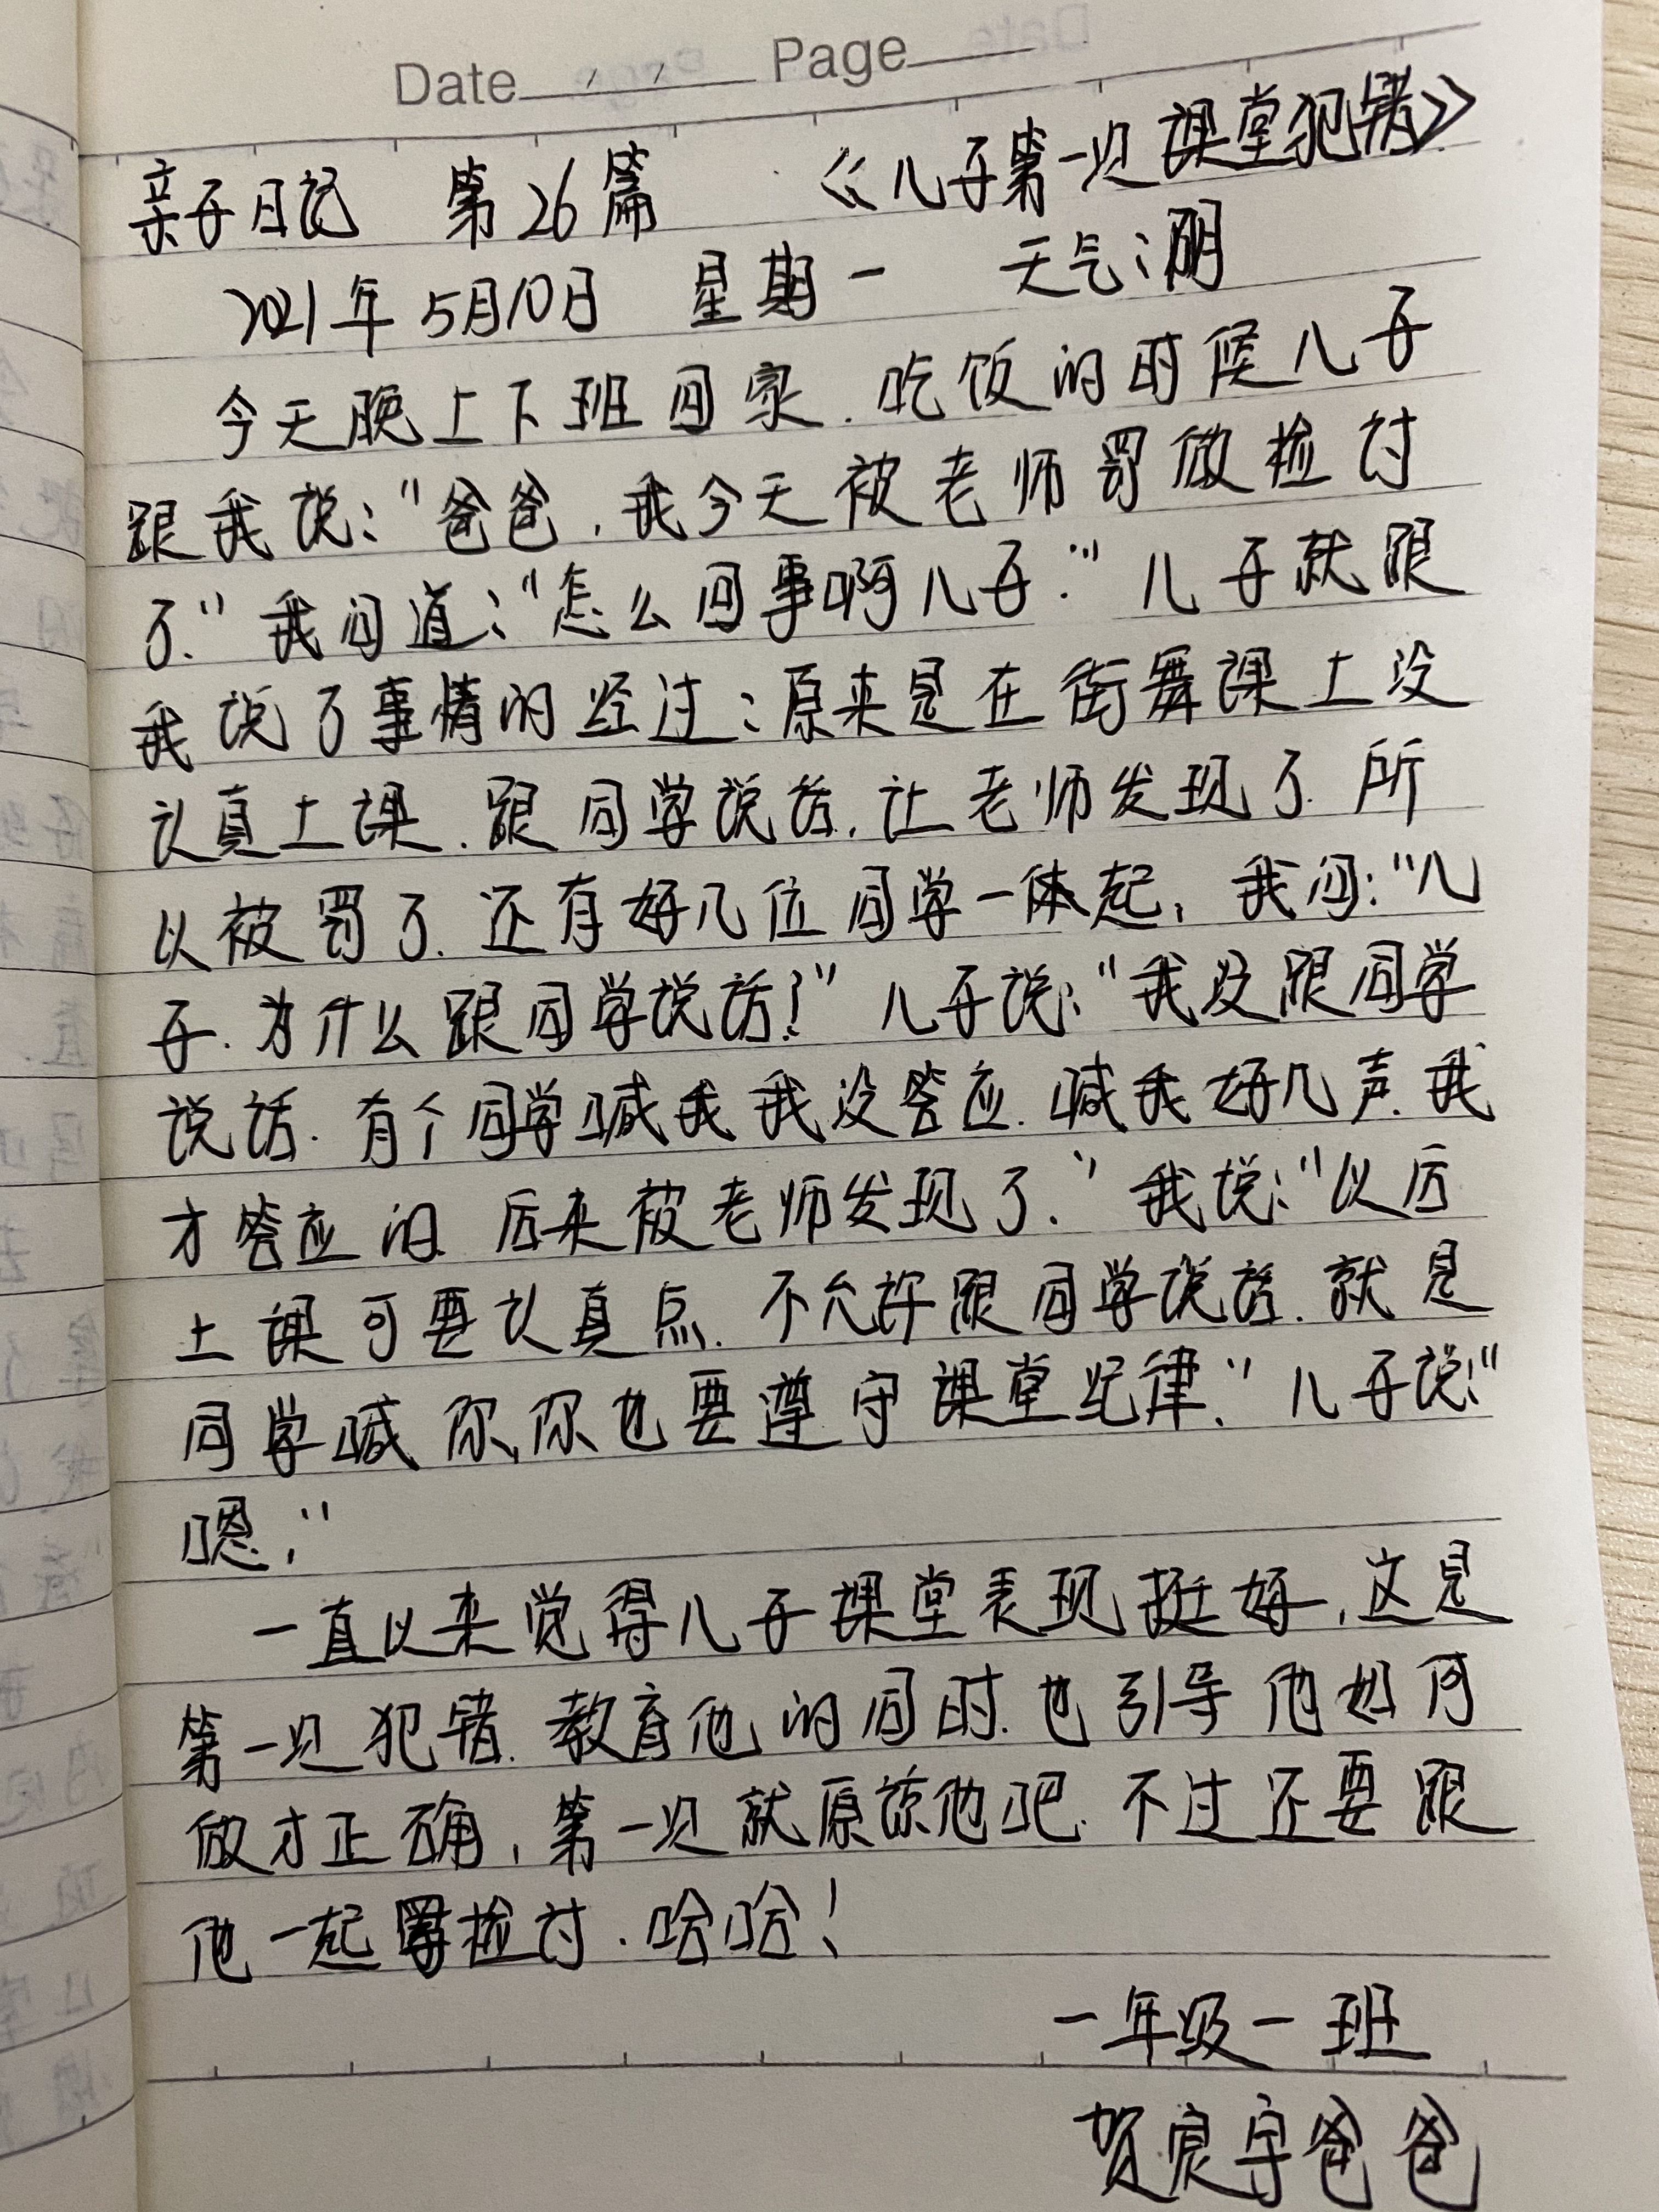 Date / / Page
亲子日记 第26篇 《儿子第一次课堂犯错》
2021年5月10日 星期一 天气:阴
今天晚上下班回家.吃饭的时候儿子
跟我说:"爸爸,我今天被老师罚做检讨
了."我问道:"怎么回事啊儿子."儿子就跟
我说了事情的经过:原来是在街舞课上没
认真上课.跟同学说话.让老师发现了.所
以被罚了.还有好几位同学一体起,我问:"儿
子.为什么跟同学说话?"儿子说:"我没跟同学
说话.有个同学喊我我没答应.喊我好几声.我
才答应的.后来被老师发现了."我说:"以后
上课可要认真点.不允许跟同学说话.就是
同学喊你,你也要遵守课堂纪律."儿子说:"
嗯,"
一直以来觉得儿子课堂表现挺好,这是
第一次犯错.教育他的同时.也引导他如何
做才正确,第一次就原谅他吧.不过还要跟
他一起写检讨.哈哈!
一年级一班
贺宸宇爸爸